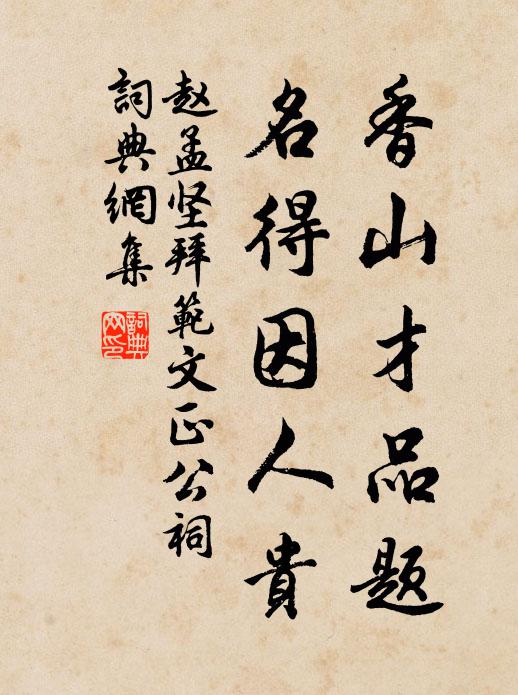 香山才品题
名得因人貴
赵孟坚拜範文正公祠
詞典網集
詞典網印